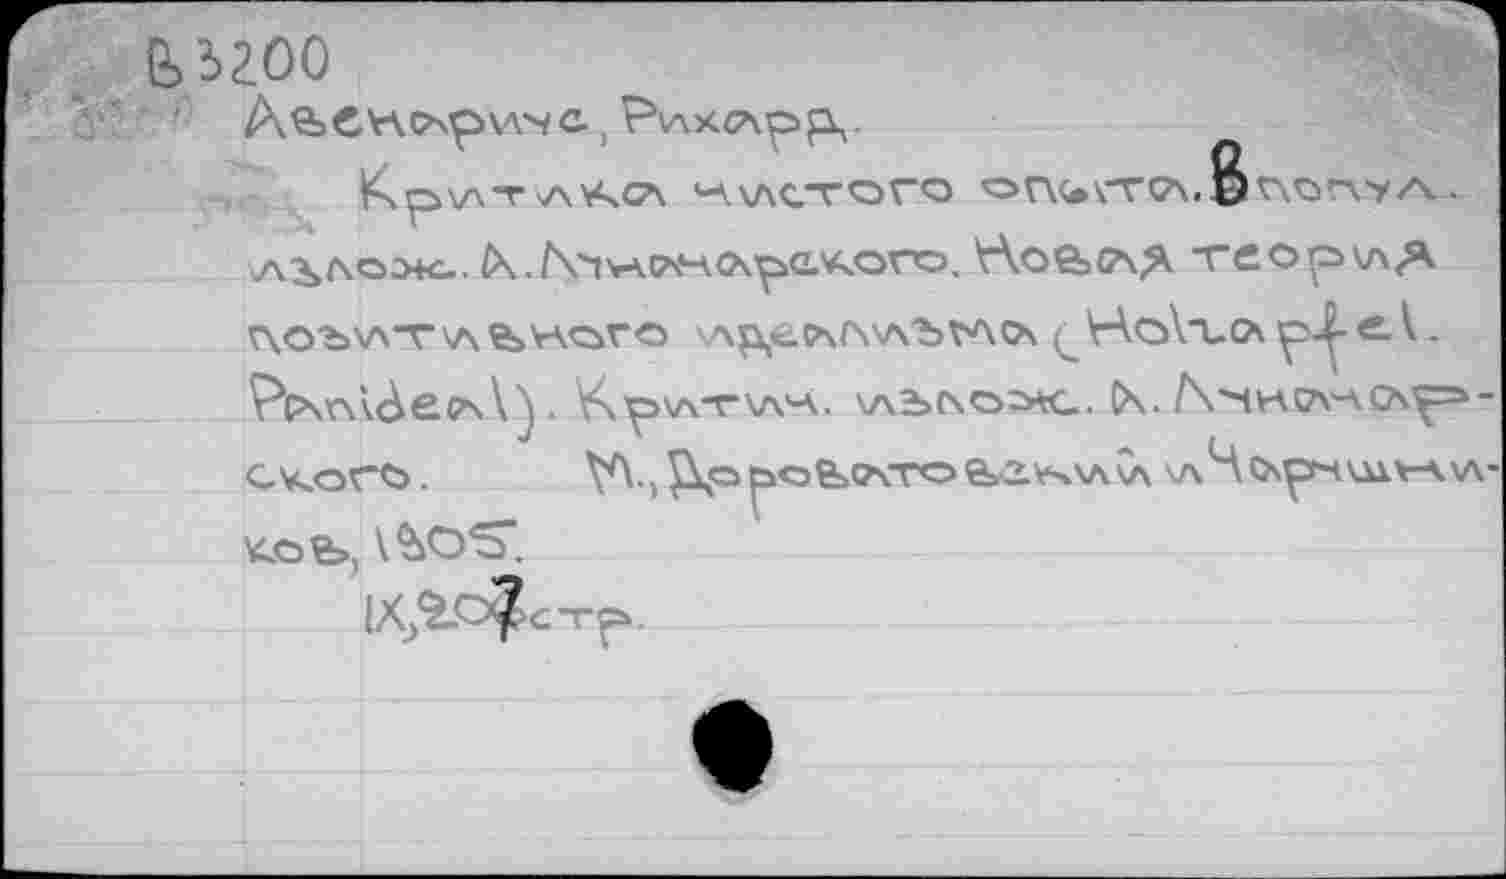 В3200
Авенариус, Рихард.
Критика чистого опыта. В попул.
излож. А. Луначарского. Новая теория
позитивного идеализма (Holzapfel.
Panideal). Критич. излож. А. Луначар-
ского. М., Дороватовский и Чарушни-
ков, 1905.
IX, 207 стр.